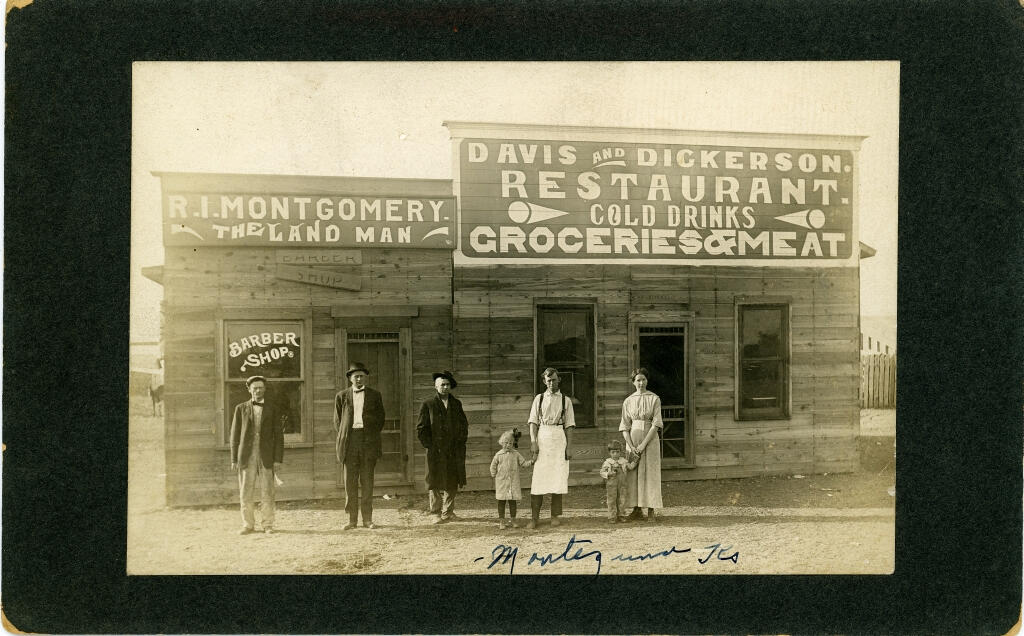 R.I. MONTGOMERY.
THE LAND MAN
BARBER
SHOP
BARBER
SHOP.
DAVIS AND DICKERSON.
RESTAURANT.
COLD DRINKS
GROCERIES & MEAT
-Montezuma Ks